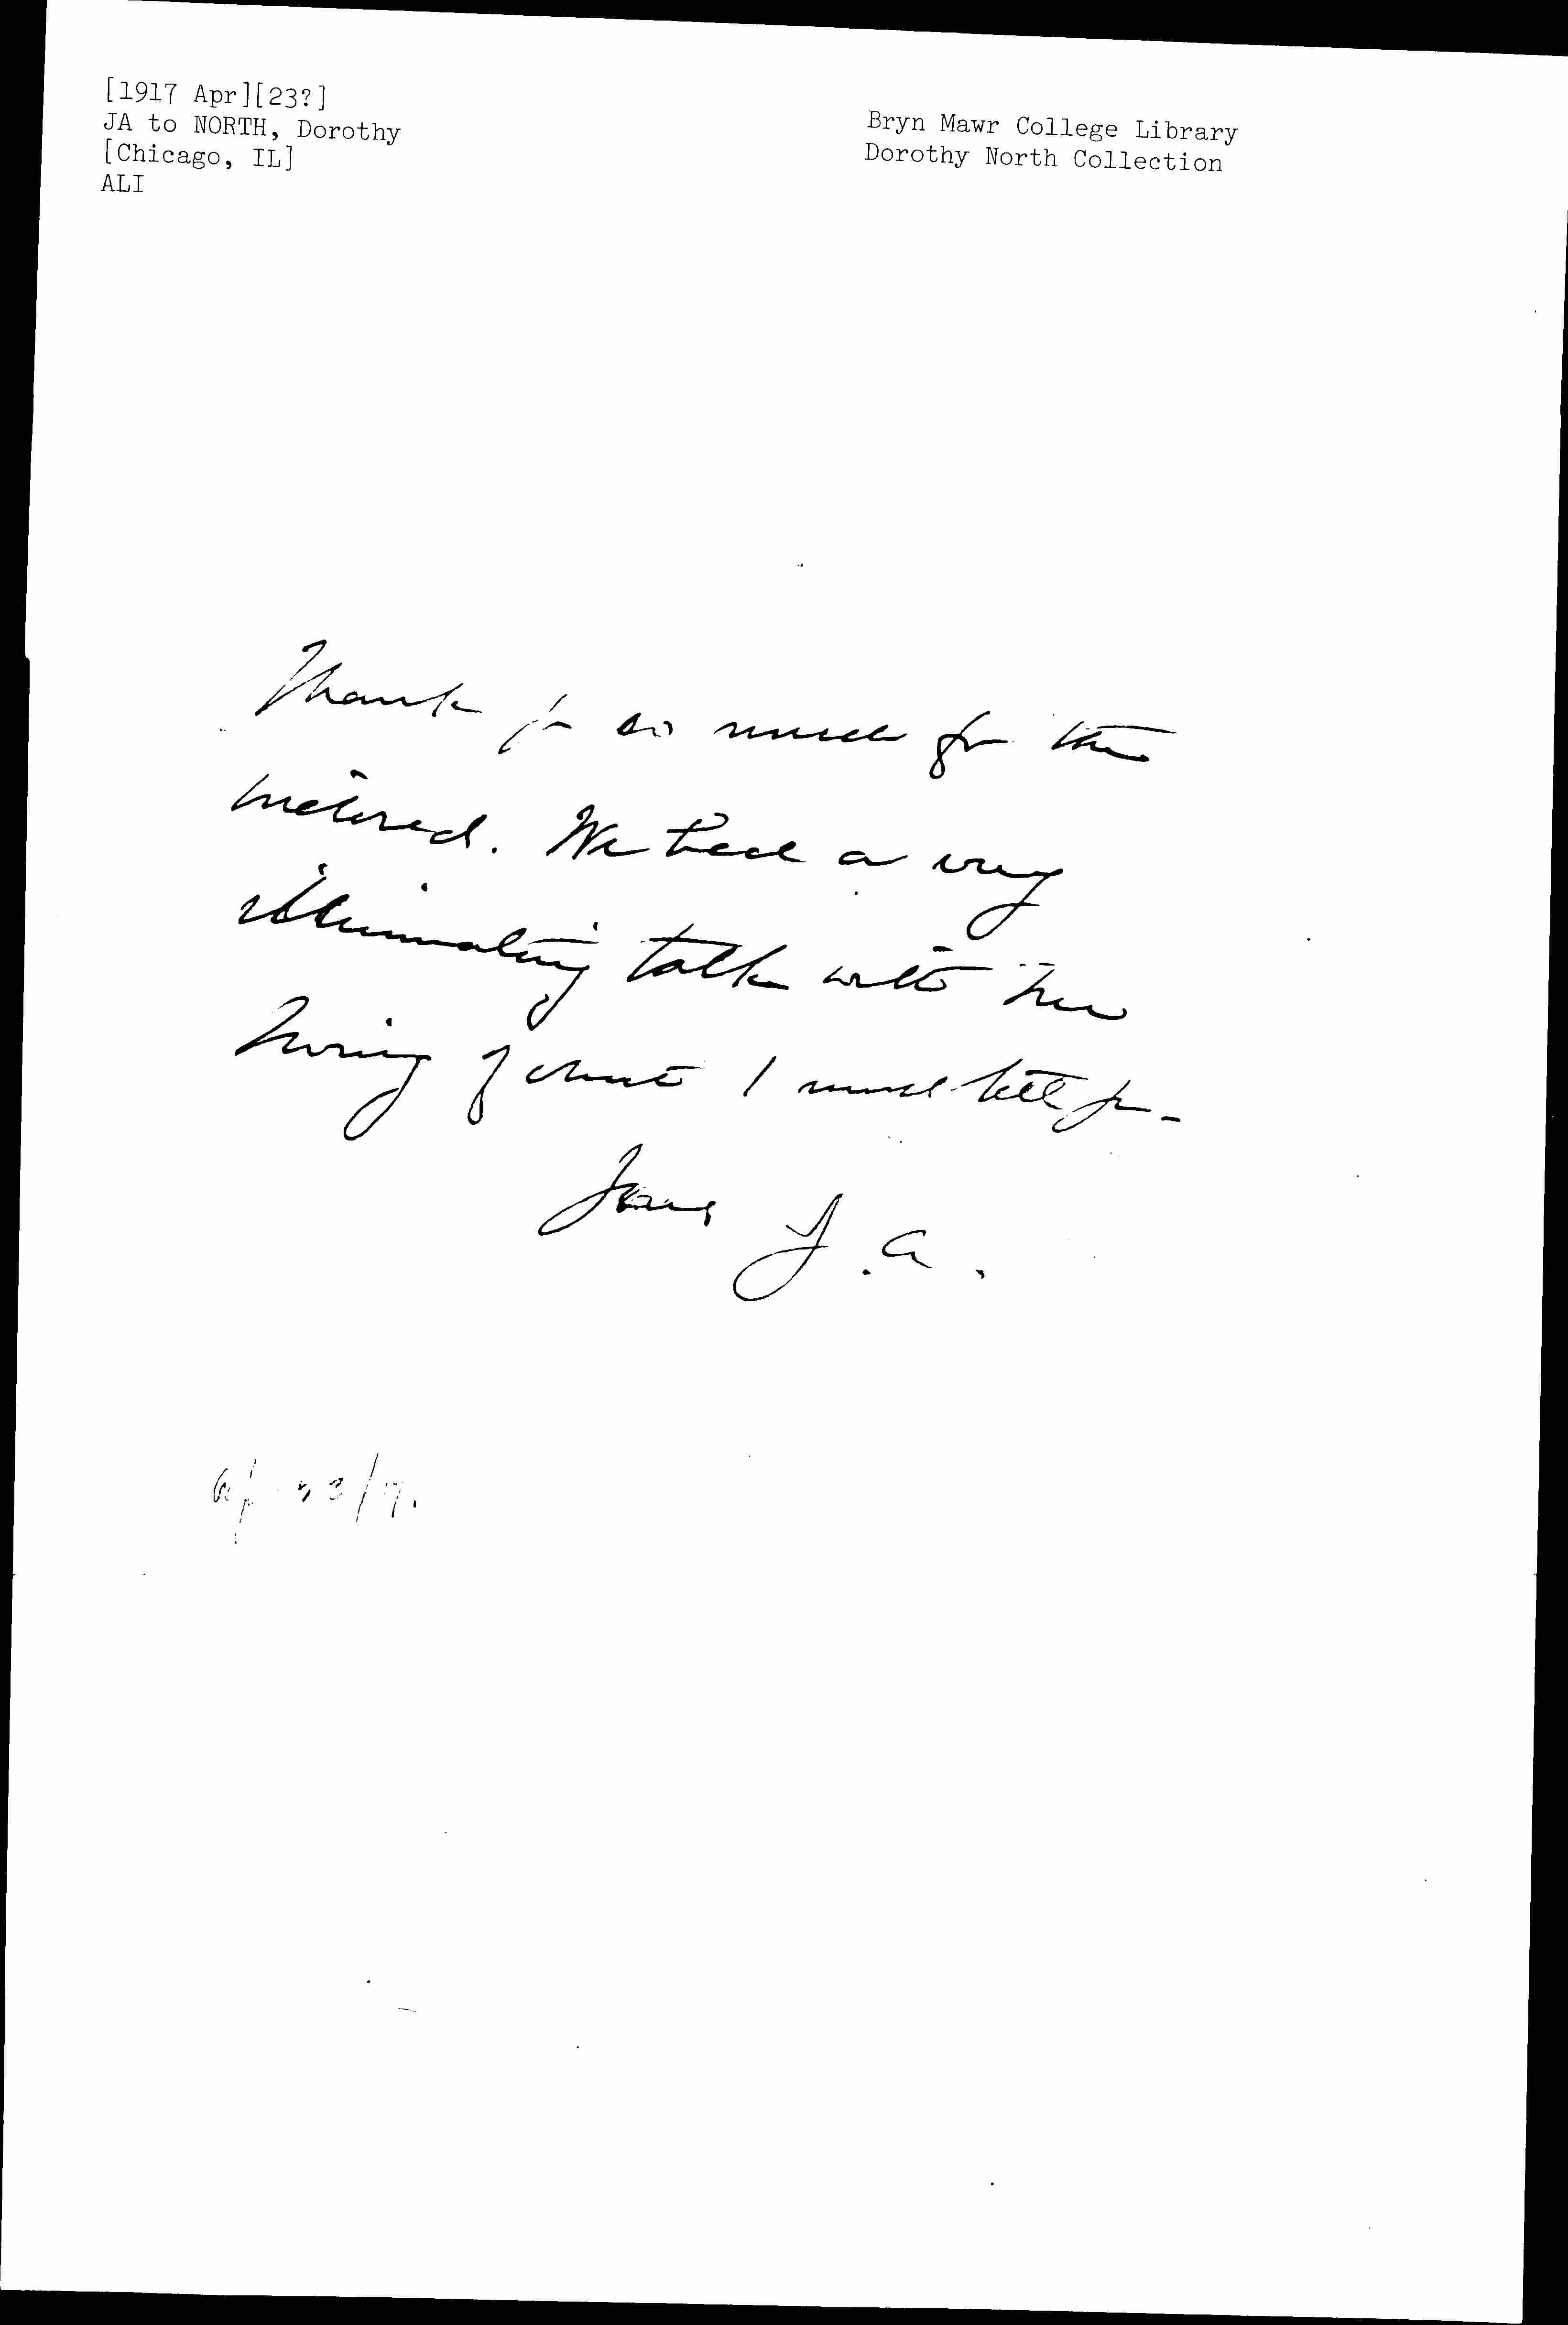 [1917 Apr][23?]
JA to NORTH, Dorothy
[Chicago, IL]
ALI
Bryn Mawr College Library
Dorothy North Collection
Thank yo so much for the
We had a very
illuminating talk with
of which I must tell yo-
Yours J. A.
Ap 23/17.